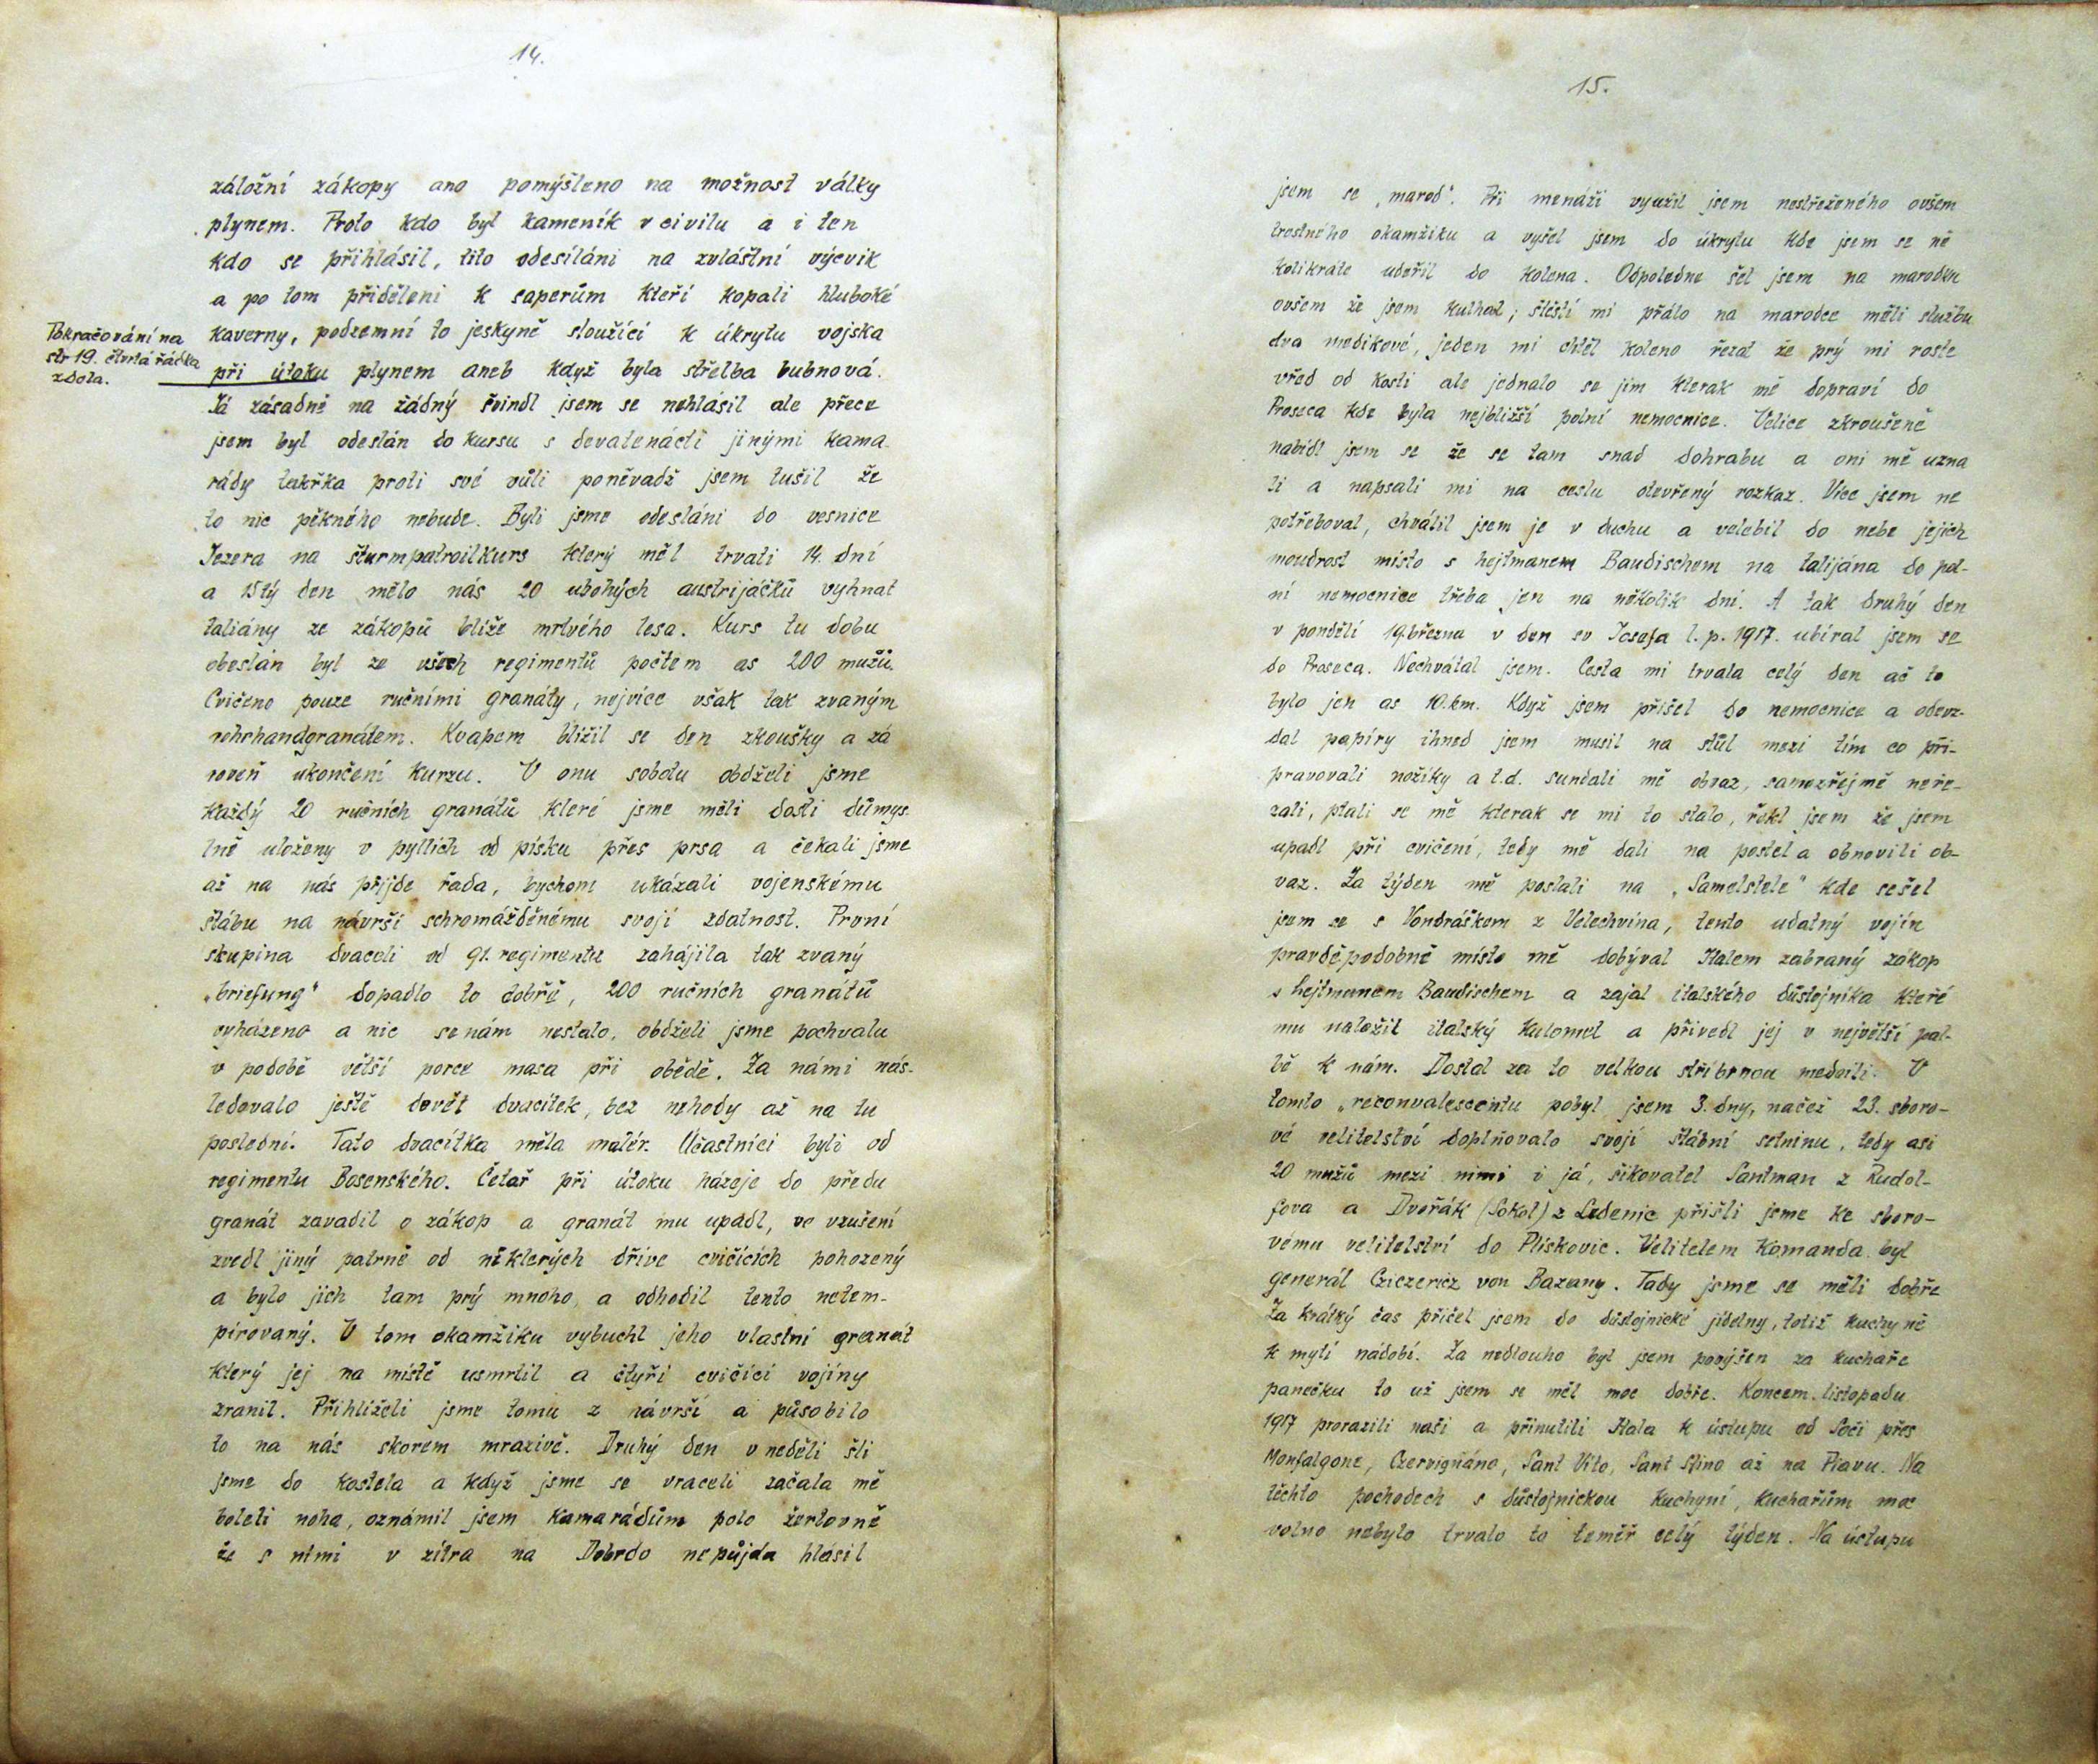 14.
záložní zákopy ano pomýšleno na možnost války
plynem. Proto kdo byl kameník v civilu a i ten
kdo se přihlásil, tito odesíláni na zvláštní výcvik
a po tom přiděleni k saperům kteří kopali hluboké
kaverny, podzemní to jeskyně sloužící k úkrytu vojska
Pokračování na
str 19. čtvrtá řádka
zdola.
při útoku plynem aneb když byla střelba bubnová.
Já zásadně na žádný švindl jsem se nehlásil ale přece
jsem byl odeslán do kursu s devatenácti jinými kama-
rády takřka proti své vůli poněvadž jsem tušil že
to nic pěkného nebude. Byli jsme odesláni do vesnice
Jezera na šturmpatroilkurs který měl trvati 14. dní
a 15tý den mělo nás 20 ubohých austrijáčků vyhnat
taliány ze zákopů blíže mrtvého lesa. Kurs tu dobu
obeslán byl ze všech regimentů počtem as 200 mužů.
Cvičeno pouze ručními granáty, nejvíce však tak zvaným
rohrhandgranátem. Kvapem blížil se den zkoušky a zá
roveň ukončení kurzu. V onu sobotu obdželi jsme
každý 20 ručních granátů které jsme měli dosti důmys.
lně uloženy v pytlích od písku přes prsa a čekali jsme
až na nás přijde řada, bychom ukázali vojenskému
štábu na návrší schromážděnému svojí zdatnost. První
skupina dvaceti od 91. regimentu zahájila tak zvaný
„briefung" dopadlo to dobře, 200 ručních granátů
vyházeno a nic se nám nestalo, obdželi jsme pochvalu
v podobě větší porce masa při obědě. Za námi nás-
ledovalo ještě devět dvacítek, bez nehody až na tu
poslední. Tato dvacítka měla malér. Účastníci byli od
regimentu Bosenského. Četař při útoku házeje do předu
granát zavadil o zákop a granát mu upadl, ve vzušení
zvedl jiný patrně od některých dříve cvičících pohozený
a bylo jich tam prý mnoho, a odhodil tento netem-
pírovaný. V tom okamžiku vybuchl jeho vlastní granát
který jej na místě usmrtil a čtyři cvičící vojíny
zranil. Přihlíželi jsme tomu z návrší a působilo
to na nás skorem mrazivě. Druhý den v neděli šli
jsme do kostela a když jsme se vraceli začala mě
boleti noha, oznámil jsem kamarádům polo žertovně
že s nimi v zítra na Dobrdo nepůjda hlásil
15.
jsem se „marod". Při menáži využil jsem nestřeženého ovšem
trestného okamžiku a vyšel jsem do úkrytu kde jsem se ně
kolikráte udeřil do kolena. Odpoledne šel jsem na marodku
ovšem že jsem kulhal; štěstí mi přálo na marodce měli službu
dva medikové, jeden mi chtěl koleno řezat že prý mi roste
vřed od kosti ale jednalo se jim kterak mě dopraví do
Proseca kde byla nejbližší polní nemocnice. Velice zkroušeně
nabídl jsem se že se tam snad dohrabu a oni mě uzna
li a napsali mi na cestu otevřený rozkaz. Více jsem ne
potřeboval, chválil jsem je v duchu a velebil do nebe jejich
moudrost místo s hejtmanem Baudischem na talijána do pol-
ní nemocnice třeba jen na několik dní. A tak druhý den
v pondělí 19. března v den sv Josefa l. p. 1917. ubíral jsem se
do Proseca. Nechvátal jsem. Cesta mi trvala celý den ač to
bylo jen as 10. km. Když jsem přišel do nemocnice a odevz-
dal papíry ihned jsem musil na stůl mezi tím co při-
pravovali nožíky a t.d. sundali mě obvaz, samozřejmě neře-
zali, ptali se mě kterak se mi to stalo, řekl jsem že jsem
upadl při cvičení, tedy mě dali na postel a obnovili ob-
vaz. Za týden mě poslali na „Samelstele" kde sešel
jsem se s Vondráškem z Velechvína, tento udatný vojín
pravděpodobně místo mě dobýval Italem zabraný zákop
s hejtmanem Baudischem a zajal italského důstojníka kteřé
mu naložil italský kulomet a přivedl jej v největší pal-
bě k nám. Dostal za to velkou stříbrnou medaili. V
tomto „reconvalescentu pobyl jsem 3. dny, načež 23. sboro-
vé velitelství doplňovalo svojí štábní setninu, tedy asi
20 mužů mezi nimi i já, šikovatel Santman z Rudol-
fova a Dvořák (Sokol) z Ledenic přišli jsme ke sboro-
vému velitelství do Plískovic. Velitelem Komanda byl
generál Cziczericz von Bazany. Tady jsme se měli dobře
Za krátký čas přišel jsem do důstojnické jídelny, totiž kuchyně
k mytí nádobí. Za nedlouho byl jsem povýšen za kuchaře
panečku to už jsem se měl moc dobře. Koncem listopadu
1917 prorazili naši a přinutili Itala k ústupu od Soči přes
Monfalgone, Czervigňáno, Sant Vito, Sant Stino až na Piavu. Na
těchto pochodech s důstojnickou kuchyní, kuchařům moc
volno nebylo trvalo to teměř celý týden. Na ústupu